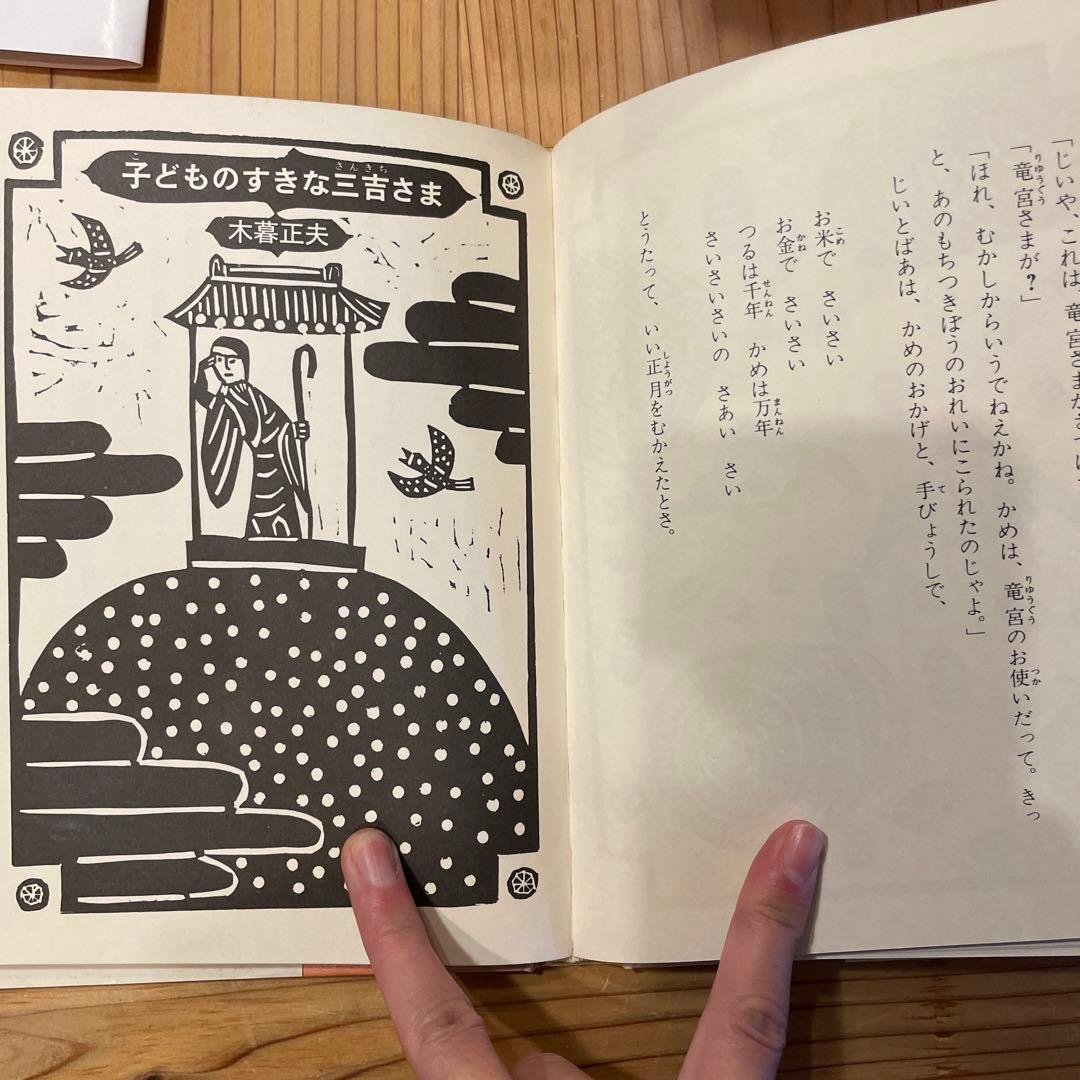 「じいや、これは、竜宮さまが
「竜宮さまが?」
「ほれ、むかしからいうでねえかね。かめは、竜宮のお使いだって。きっ
と、あのもちつきぼうのおれいにこられたのじゃよ。」
じいとばあは、かめのおかげと、手びょうしで、
お米で　さいさい
お金で　さいさい
つるは千年　かめは万年
さいさいさいの　さあい　さい
とうたって、いい正月をむかえたとさ。
子どものすきな三吉さま
木暮正夫